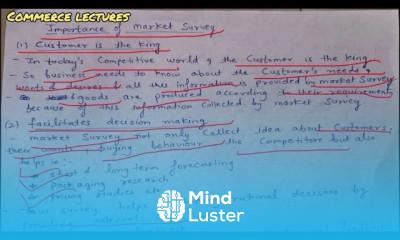 COMMERCE LECTURES
Importance of Market Survey
(1) Customer is the King
- In today's Competitive world & the Customer is the King
- So business needs to know about the Customer's needs &
wants & all this information is provided by market Survey
goods are produced according to their requirements
because of this information collected by market survey
(2) facilitates decision making
- market Survey not only Collect idea about Customers,
their wants, buying behaviour the Competitors but also
helps in :-
short & long term forecasting
Packaging research
Pricing studies etc
survey helps decisions by
providing
Mind
Luster